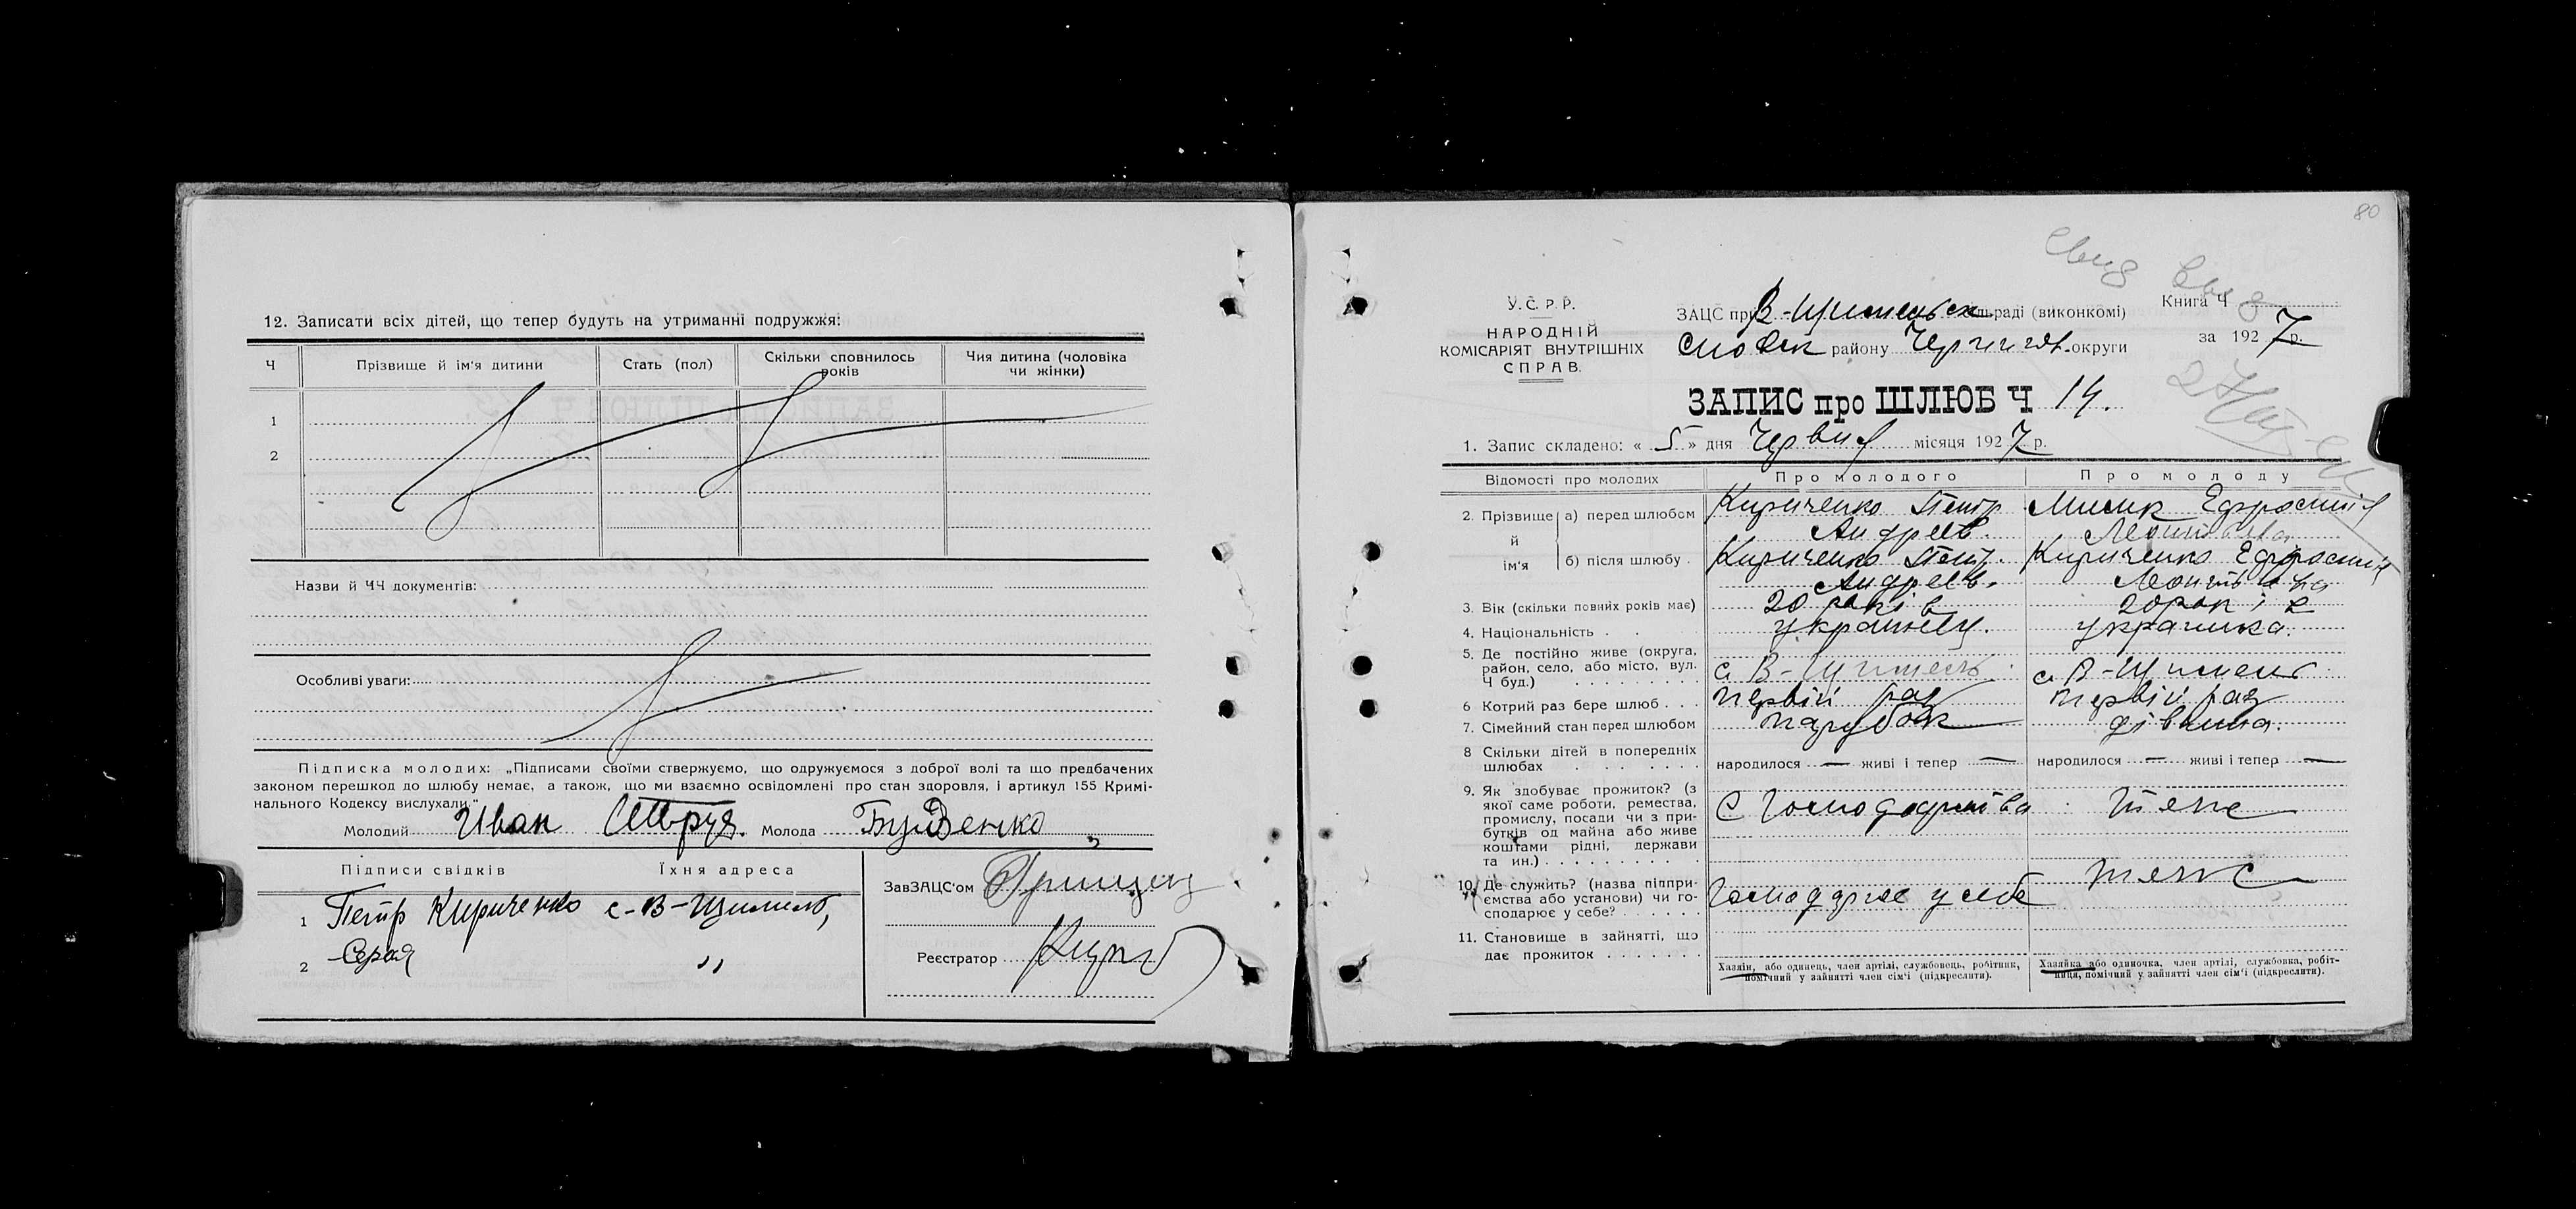 12. Записати всіх дітей, що тепер будуть на утриманні подружжя:
Ч Прізвище й ім'я дитини Стать (пол) Скільки сповнилось років Чия дитина (чоловіка чи жінки)
1
2
Назви й ЧЧ документів:
Особливі уваги:
Підписка молодих: „Підписами своїми ствержуємо, що одружуємося з доброї волі та що предбачених
законом перешкод до шлюбу немає, а також, що ми взаємно освідомлені про стан здоровля, і артикул 155 Кримі-
нального Кодексу вислухали."
Молодий Иван Молода
Підписи свідків Їхня адреса
1 Петр Кириченко с-В-
2 "
ЗавЗАЦС'ом
Реєстратор
80
У.С.Р.Р.
НАРОДНІЙ
КОМІСАРІЯТ ВНУТРІШНІХ
СПРАВ.
ЗАЦС при раді (виконкомі)
району округи
Книга Ч
за 1927 р.
ЗАПИС про ШЛЮБ Ч 14.
1. Запис складено: « 5 » дня Червня місяця 1927 р.
Відомості про молодих Про молодого Про молоду
2. Прізвище й ім'я
а) перед шлюбом Кириченко Петр Андреев.
б) після шлюбу Кириченко Петр. Андреев. Кириченко
3. Вік (скільки повних років має) 20 років 20 років
4. Національність українец. українка.
5. Де постійно живе (округа,
район, село, або місто, вул.
Ч буд.) с. В- с. В-
6 Котрий раз бере шлюб первій раз первій раз
7. Сімейний стан перед шлюбом парубок дівчина.
8 Скільки дітей в попередніх
шлюбах народилося — живі і тепер — народилося — живі і тепер —
9. Як здобуває прожиток? (з
якої саме роботи, ремества,
промислу, посади чи з при-
бутків од майна або живе
коштами рідні, держави
та ин.) С Господарства теже
10. Де служить? (назва підпри-
ємства або установи) чи го-
сподарює у себе? Господарює у себе теже
11. Становище в зайнятті, що
дає прожиток
Хазяїн, або одинець, член артілі, службовець, робітник,
помічний у зайнятті член сім'ї (підкреслити).
Хазяйка або одиночка, член артілі, службовка, робіт-
ниця, помічний у зайнятті член сім'ї (підкреслити).